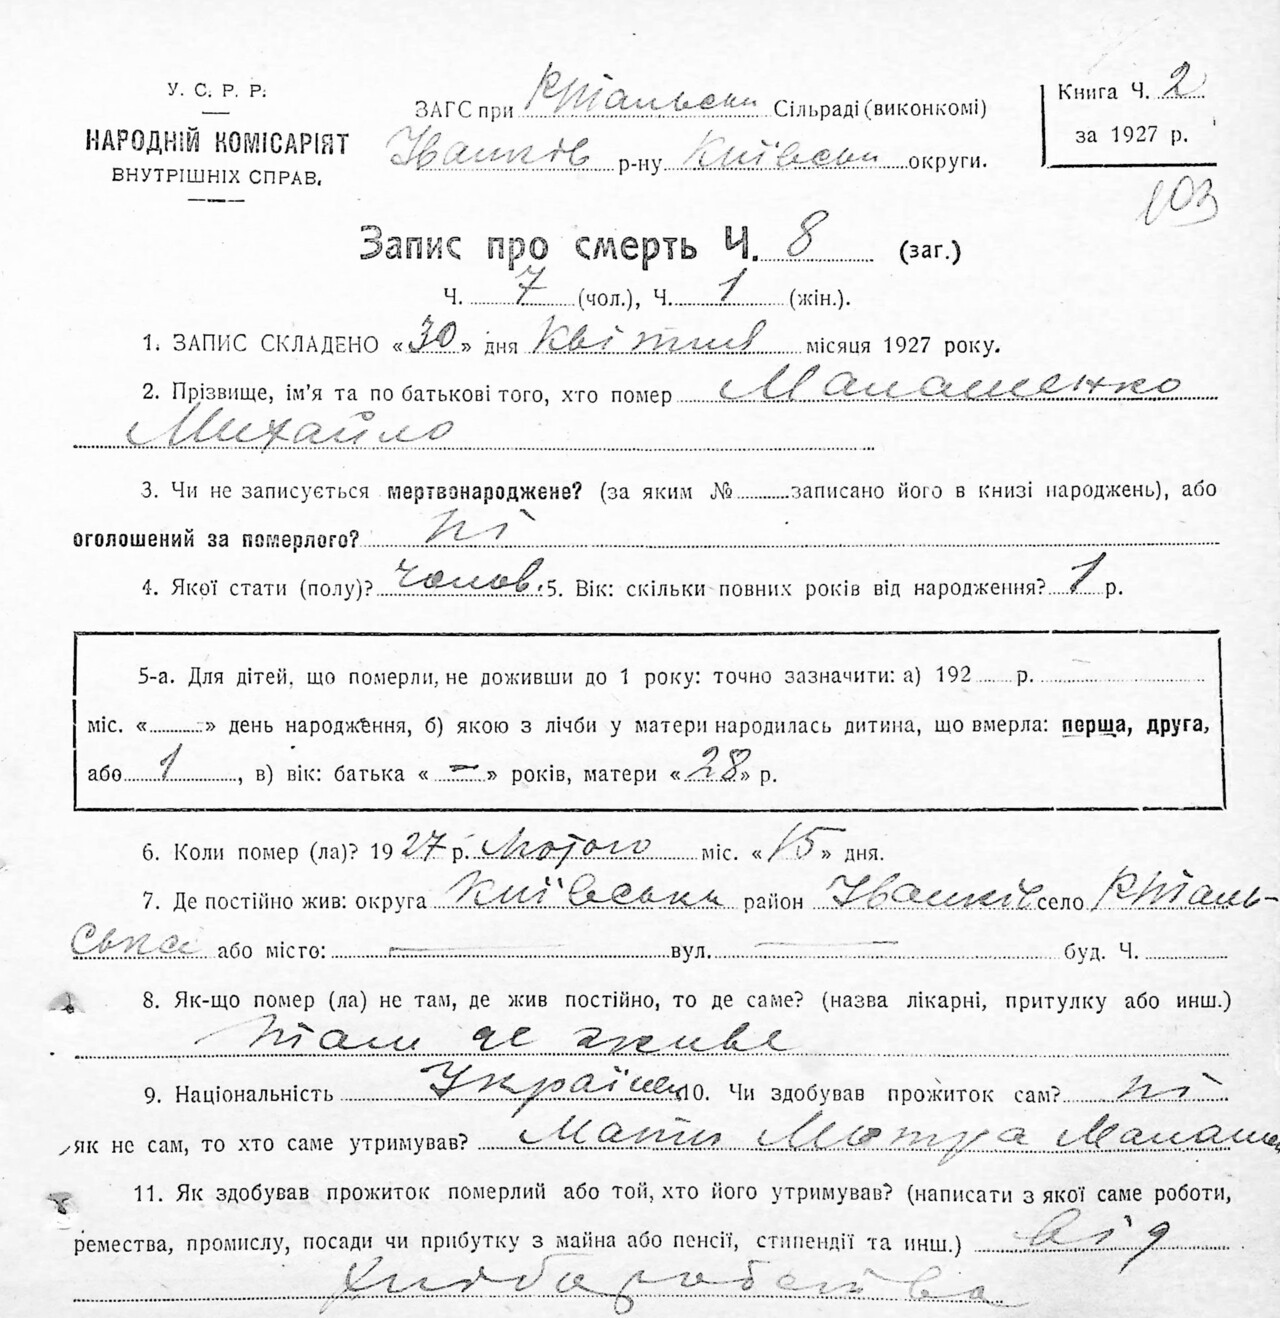 У. С. Р. Р.
НАРОДНІЙ КОМІСАРІЯТ
ВНУТРІШНІХ СПРАВ.
ЗАГС при Ктальськи Сільраді (виконкомі)
Іванків р-ну Київськи округи.
Книга Ч. 2
за 1927 р.
103
Запис про смерть Ч. 8 (заг.)
Ч. 7 (чол.), Ч. 1 (жін.).
1. ЗАПИС СКЛАДЕНО «30» дня Квітня місяця 1927 року.
2. Прізвище, ім'я та по батькові того, хто помер Малашенко
Михайло
3. Чи не записується мертвонароджене? (за яким № записано його в книзі народжень), або
оголошений за померлого? ні
4. Якої стати (полу)? чолов. 5. Вік: скільки повних років від народження? 1 р.
5-а. Для дітей, що померли, не доживши до 1 року: точно зазначити: а) 192 р.
міс. « » день народження, б) якою з лічби у матери народилась дитина, що вмерла: перща, друга,
або 1, в) вік: батька « – » років, матери «28» р.
6. Коли помер (ла)? 1927 р. Лютого міс. «15» дня.
7. Де постійно жив: округа Київська район Іванків село Кталь-
ська або місто: — вул. — буд. Ч.
8. Як-що помер (ла) не там, де жив постійно, то де саме? (назва лікарні, притулку або инш.)
там де живе
9. Національність Українец 10. Чи здобував прожиток сам? ні
як не сам, то хто саме утримував? Мати Мотра Малашен
11. Як здобував прожиток померлий або той, хто його утримував? (написати з якої саме роботи,
ремества, промислу, посади чи прибутку з майна або пенсії, стипендії та инш.) від
хліборобства